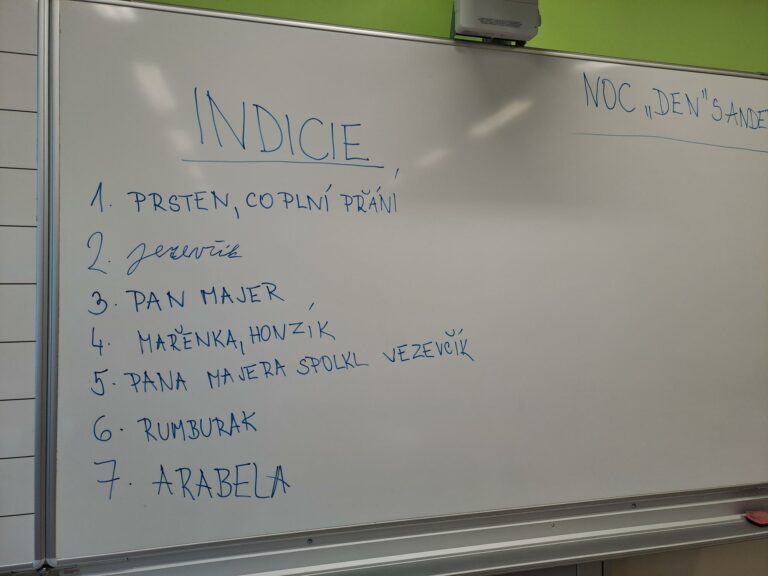 INDICIE
NOC „DEN" S ANDE
1. PRSTEN, CO PLNÍ PŘÁNÍ
2. jezevčík
3. PAN MAJER
4. MAŘENKA, HONZÍK
5. PANA MAJERA SPOLKL VEZEVČÍK
6. RUMBURAK
7. ARABELA